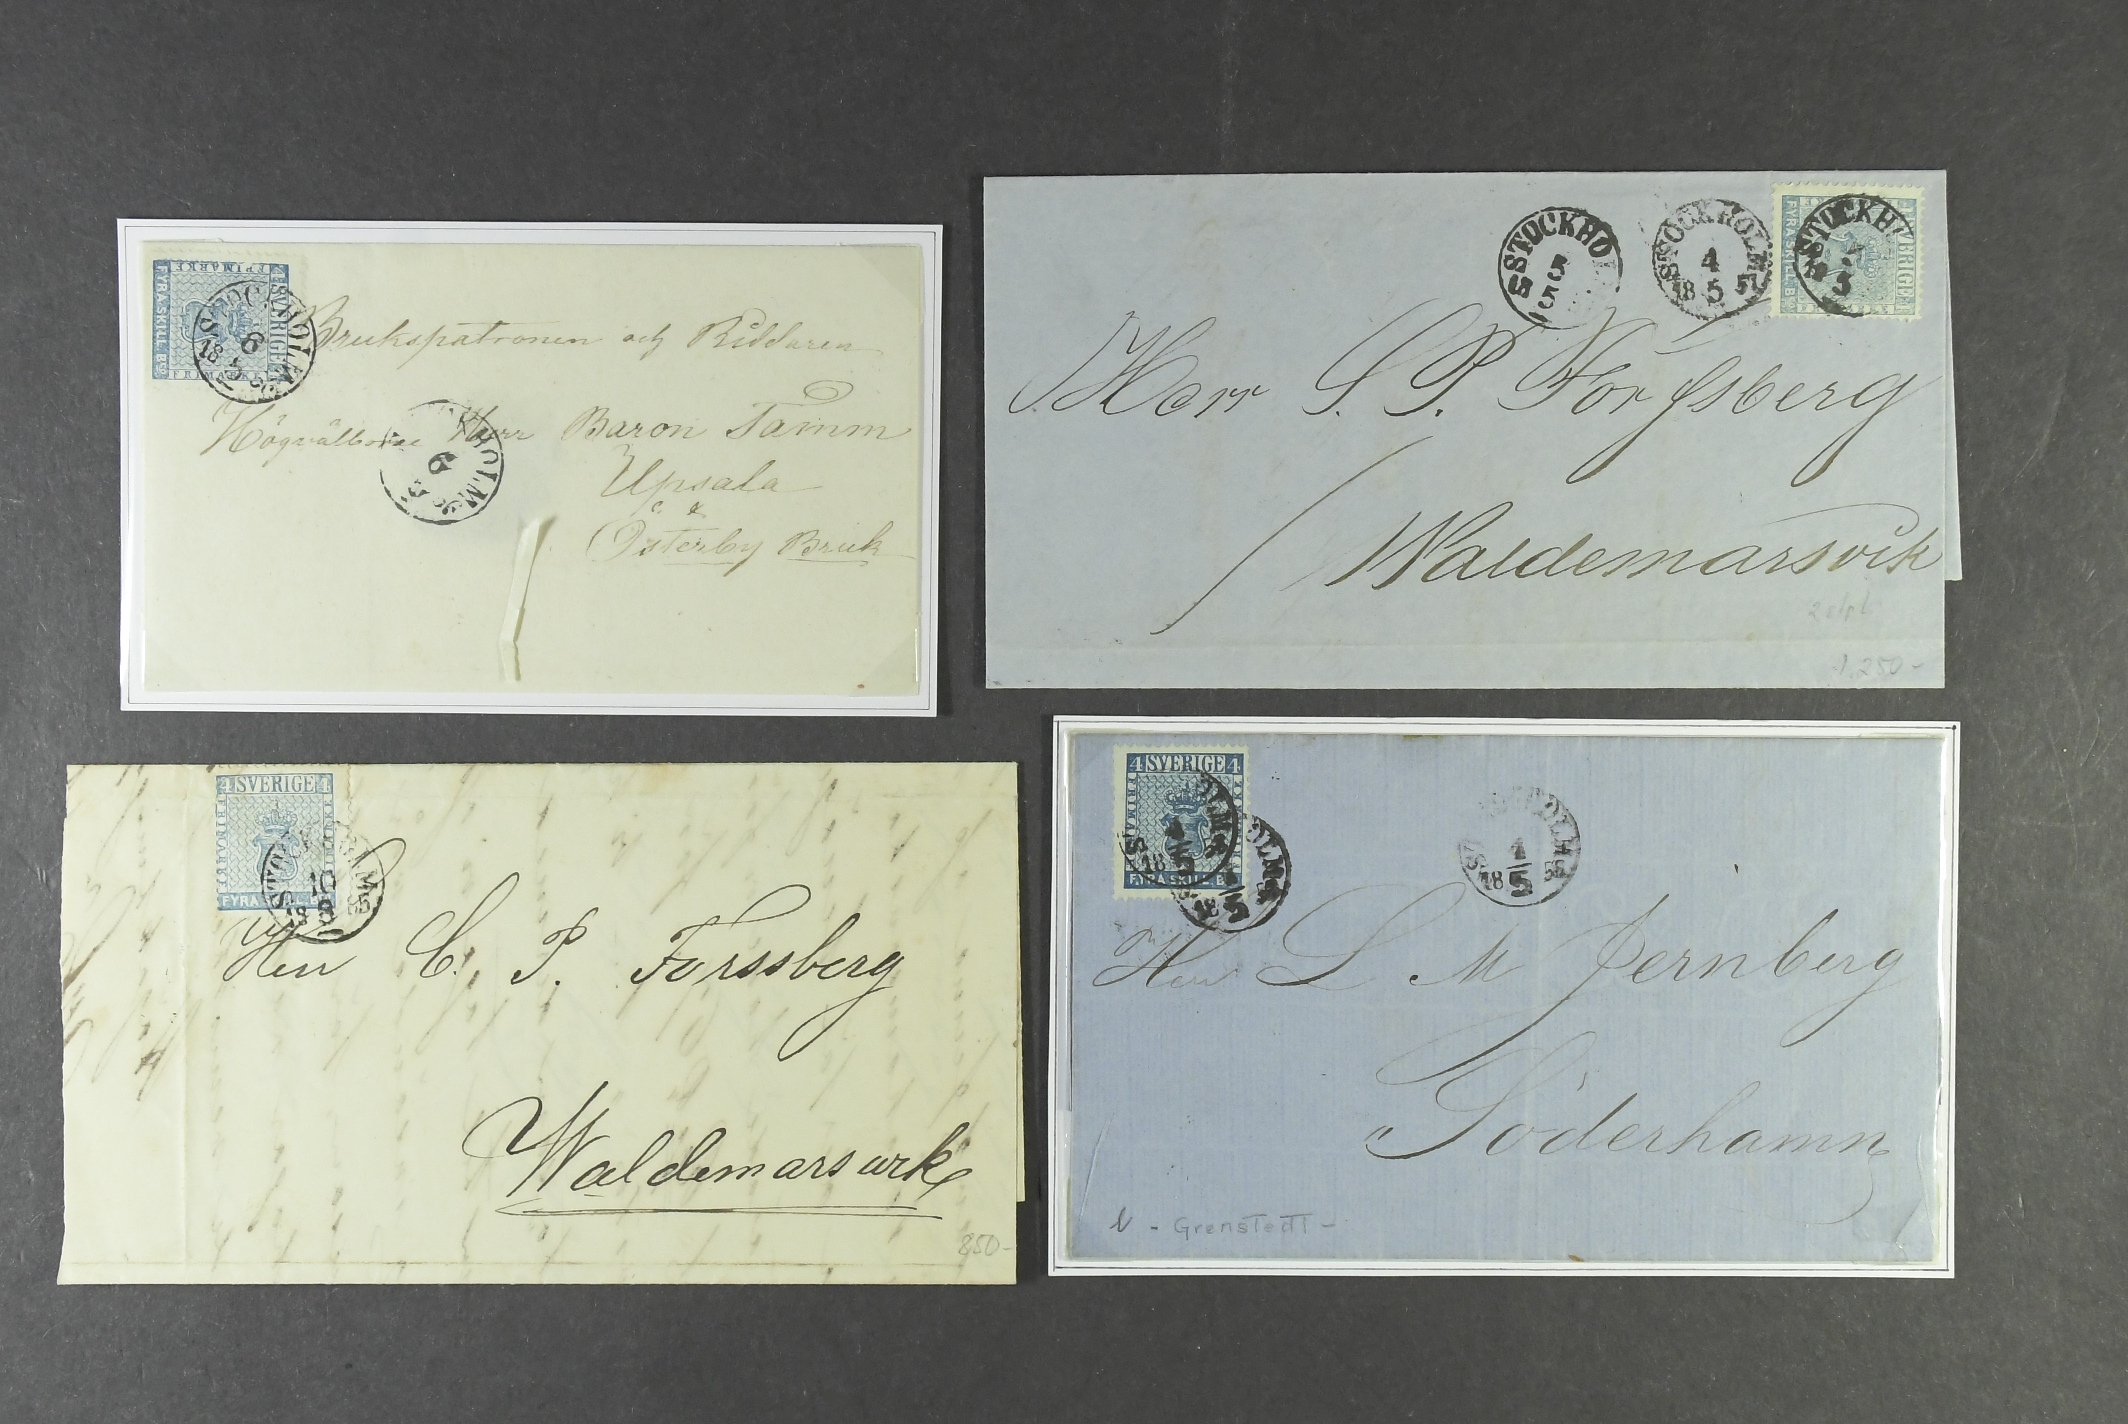 SVERIGE
FRIMÄRKE
FYRA SKILL. BCO
FRIMÄRKE
STOCKHOLM
6
18 5 56
Brukspatronen och Riddaren
Högvälborne Herr Baron Tamm
Upsala
Österby Bruk
HOLM
6
STOCKHOL
5
5
STOCKHOLM
4
18 5 57
STOCKH
4
5
FYRA SKILL. B
VERIGE
Herr C. P. Forssberg
Waldemarsvik
250-
4 SVERIGE 4
FRIMÄRKE
FYRA SKILL. B
STOCKHOLM
10
18 8 55
Herr C. P. Forssberg
Waldemarsvik
250-
4 SVERIGE 4
FRIMÄRKE
FYRA SKILL. B
OLM
4
18 5
OLM
4
18 5
HOLM
4
18 5 56
Herr L M Jernberg
Söderhamn
- Grenstedt -